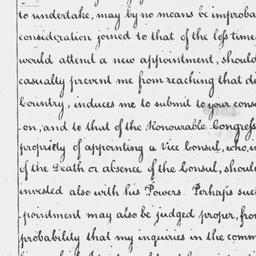 to undertake, may by no means be improba
consideration joined to that of the loss time
would attend a new appointment, should
casually prevent me from reaching that di
Country, induces me to submit to your cons
on, and to that of the Honourable Congress
propriety of appointing a Vice Consul, who, i
of the Death or absence of the Consul, shoul
invested also with his Powers. Perhaps suc
pointment may also be judged proper, from
probability that my inquiries in the comm